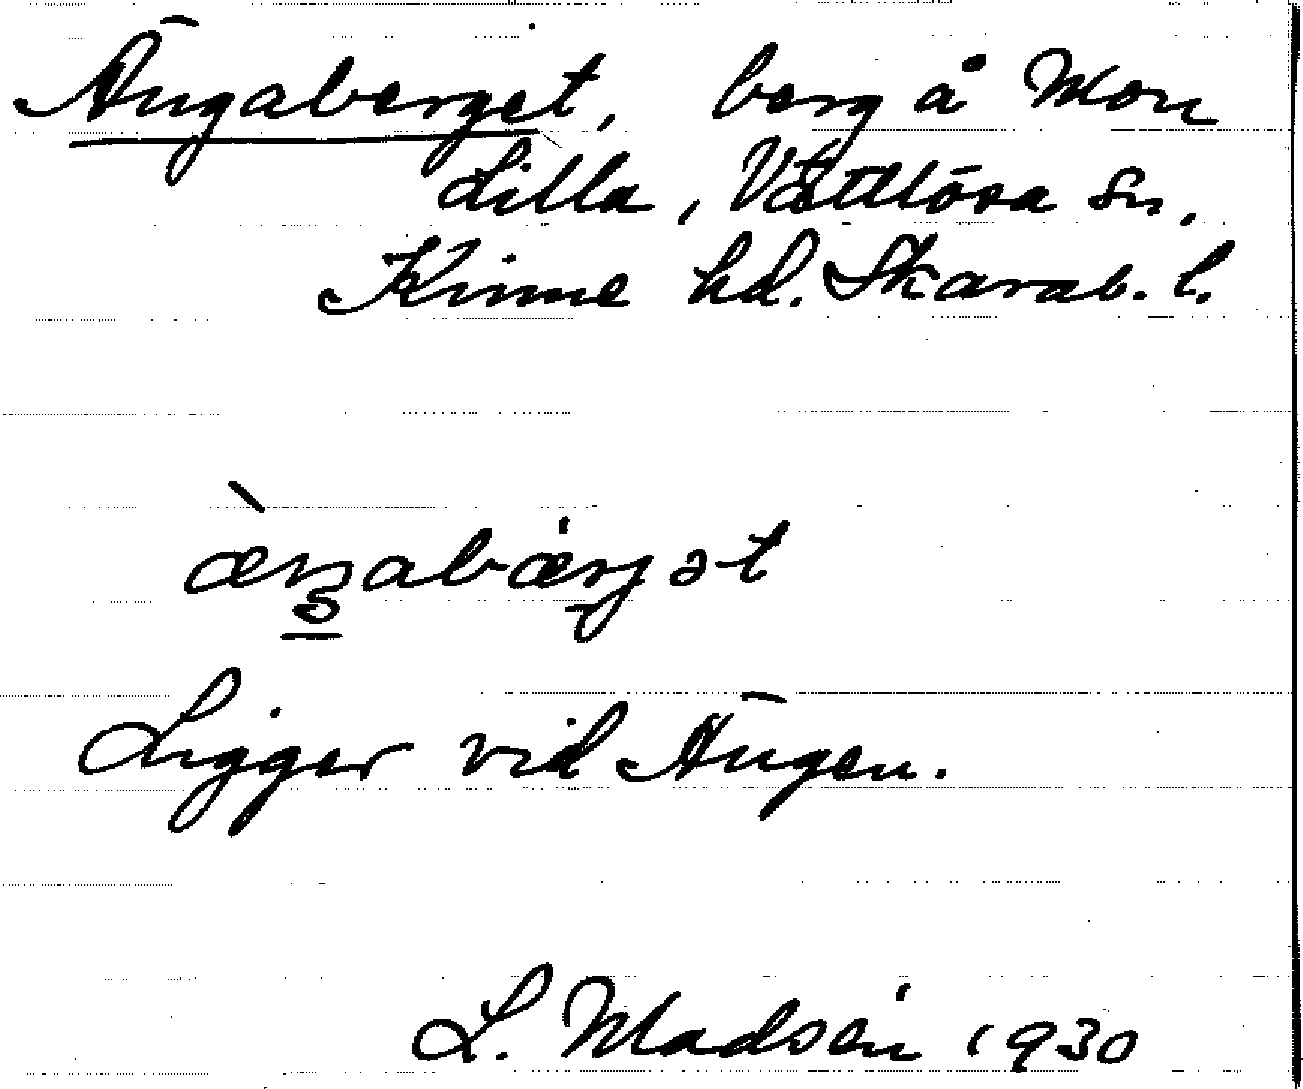 Ängaberget, berg å Mon
Lilla, Vättlösa sn,
Kinne hd. Skarab. l.
æ̀ŋabærjət
Ligger vid Ängen.
L. Madsén 1930